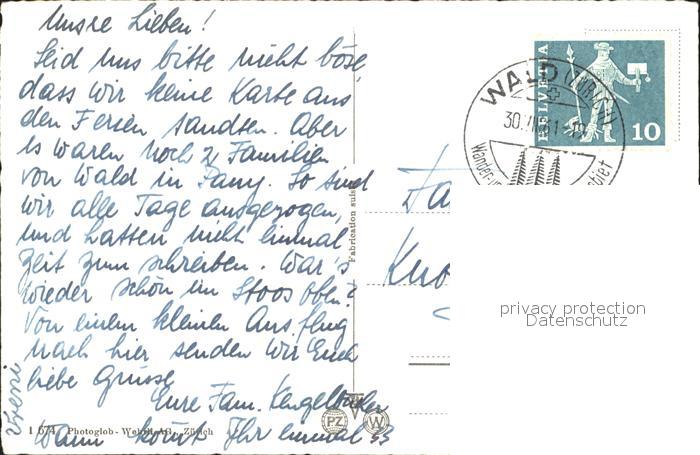 Unsre Lieben!
Seid uns bitte nicht böse,
dass wir keine Karte aus
den Ferien sandten. Aber
es waren noch 2 Familien
von Wald in Pany. So sind
wir alle Tage ausgezogen,
und hatten nicht einmal
Zeit zum schreiben. War's
wieder schön im Stoos oben?
Von einem kleinen Ausflug
nach hier senden wir Euch
liebe Grüsse
Eure Fam.
Wann kommt Ihr einmal
Vreni
1 674 Photoglob-Wehrli AG., Zürich
Fabrication suisse
PZ
W
HELVETIA
10
WALD (ZÜRICH)
30.
61
Fa
Kno
privacy protection
Datenschutz